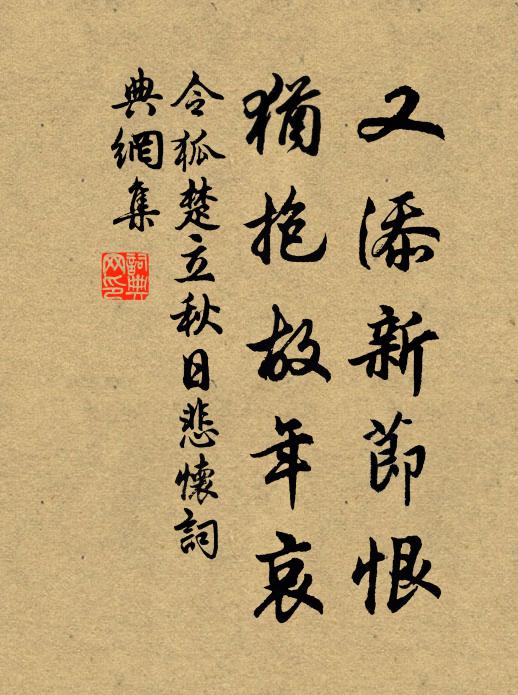 又添新節恨
猶抱故年哀
令狐楚立秋日悲懷詞
典網集
詞典
网印